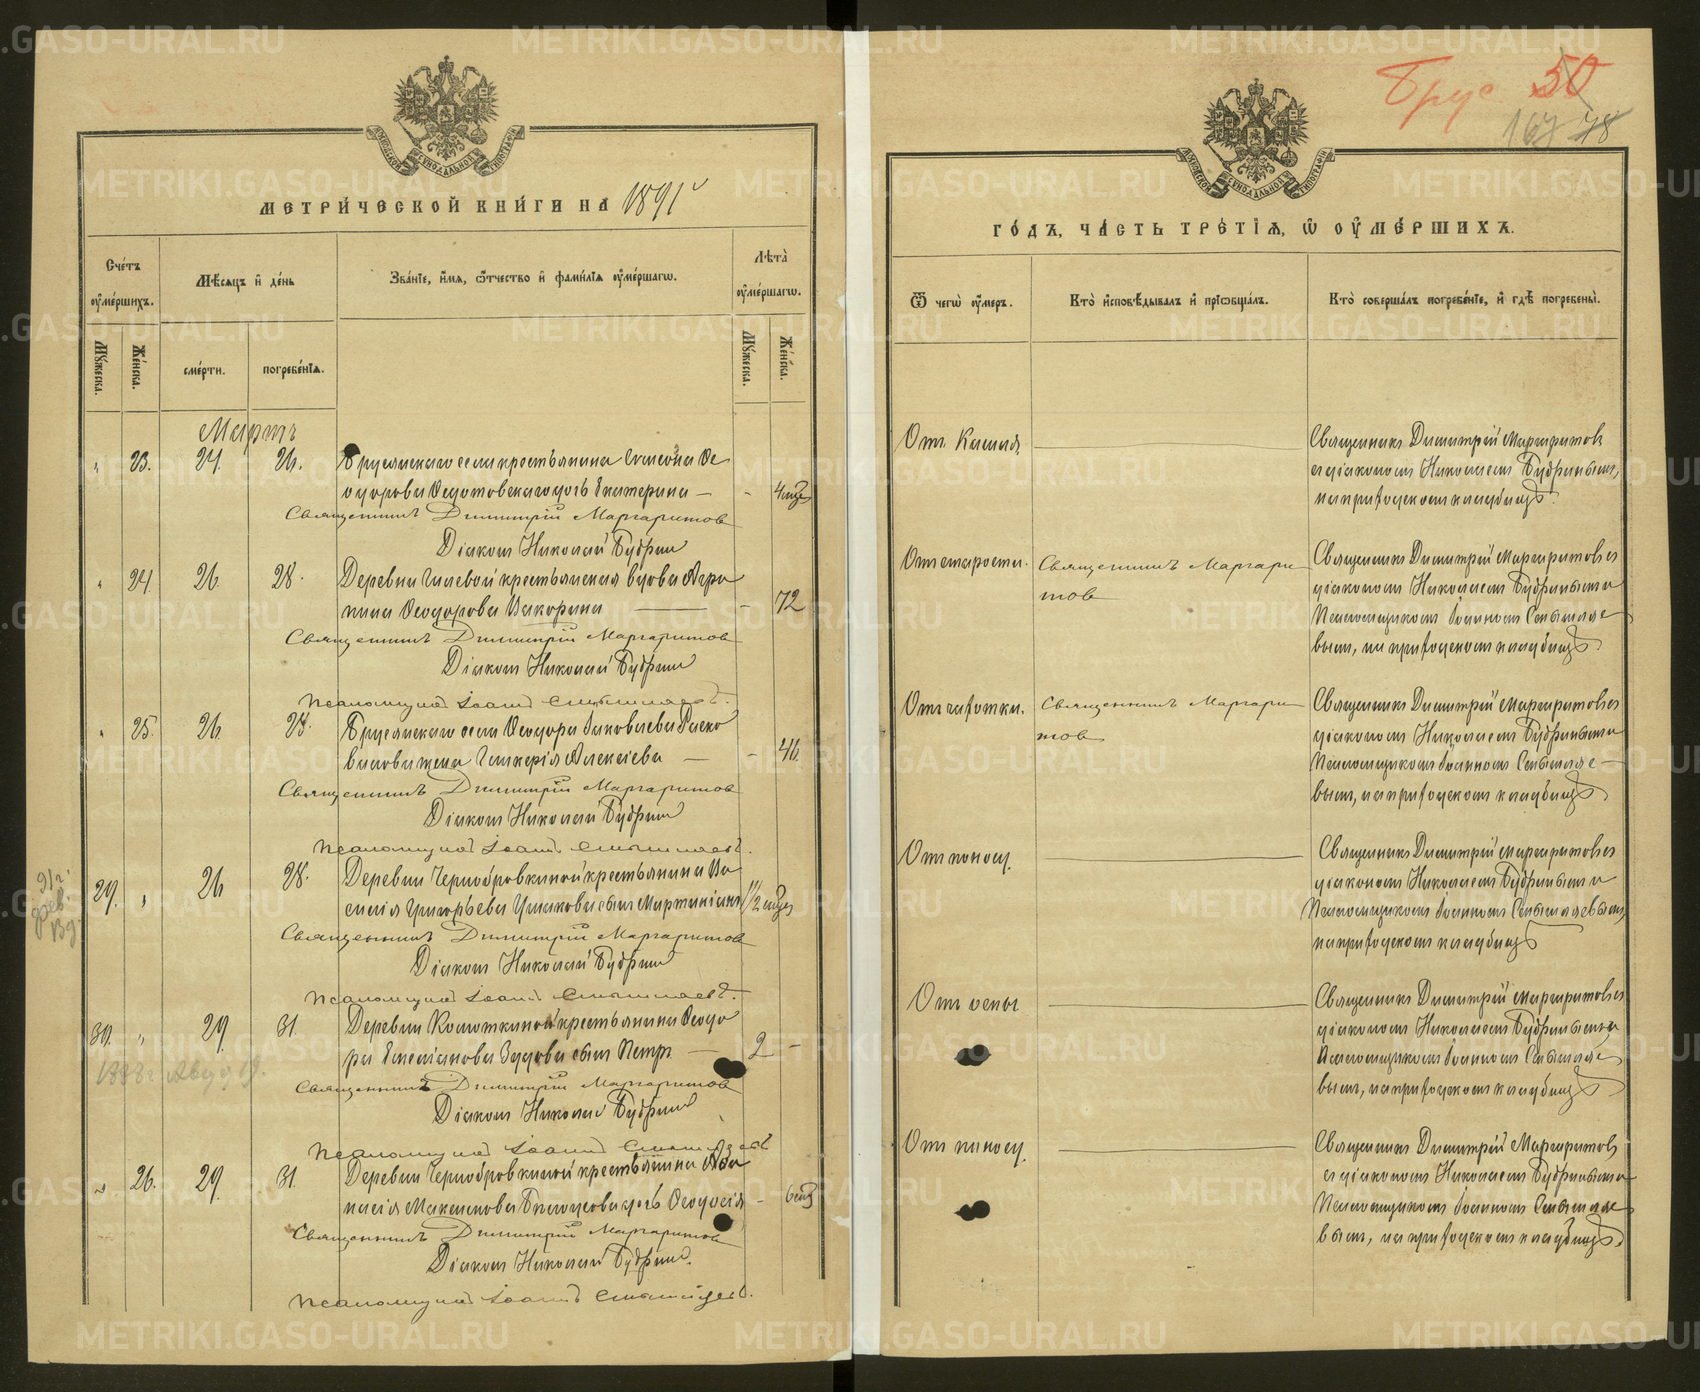 Брус. 50
167 78
МЕТРИ́ЧЕСКОЙ КНИ́ГИ НА 1891 г
Сче́тъ ᲂу҆ме́ршихъ.
Мѣ́сяцъ и҆ де́нь
Зва́нїе, и҆́мя, ѻ҆́тчество и҆ фами́лїя ᲂу҆ме́ршагѡ.
Лѣта̀ ᲂу҆ме́ршагѡ.
Мꙋ́жеска.
Же́нска.
сме́рти.
погребе́нїѧ.
Мꙋ́жеска.
Же́нска.
Мартъ
" 23. 24. 26. Бруснянскаго села крестьянина Симеона Ѳе
одорова Ѳедотовскаго дочь Екатерина — - 4 мѣс
Священникъ Димитрій Маргаритовъ
Діаконъ Николай Будринъ
" 24. 26. 28. Деревни Гилевой крестьянская вдова Агри
пина Ѳеодорова — - 72
Священникъ Димитрій Маргаритовъ
Діаконъ Николай Будринъ
Псаломщикъ Іоаннъ Смышляевъ.
" 25. 26 28. Бруснянскаго села Ѳеодора Яковлева
жена Гликерія Алексіева — - 46.
Священникъ Димитрій Маргаритовъ
Діаконъ Николай Будринъ
Псаломщикъ Іоаннъ Смышляевъ.
29. " 26 28. Деревни Чернобровкиной крестьянина Ва
силія Григорьева Ушакова сынъ Мартиніанъ 1 1/2 мѣс
91 г. фев.
Священникъ Димитрій Маргаритовъ
Діаконъ Николай Будринъ
Псаломщикъ Іоаннъ Смышляевъ.
30. " 29. 31. Деревни Колоткиной крестьянина Ѳеодо
ра Емеліанова сынъ Петръ — 2 -
1888 г. Авг. 19.
Священникъ Димитрій Маргаритовъ
Діаконъ Николай Будринъ
Псаломщикъ Іоаннъ Смышляевъ
" 26. 29. 31. Деревни Чернобровкиной крестьянина Аѳа
насія Максимова Бѣлоусова дочь Ѳеодосія - 6 мѣс
Священникъ Димитрій Маргаритовъ
Діаконъ Николай Будринъ.
Псаломщикъ Іоаннъ Смышляевъ.
ГО́ДЪ, ЧА́СТЬ ТРЕ́ТЇѦ, Ѡ҆ ᲂУ҆МЕ́РШИХЪ.
Ѿ чегѡ̀ ᲂу҆́меръ.
Кто̀ и҆сповѣ́дывалъ и҆ прїѡбща́лъ.
Кто̀ соверша́лъ погребе́нїе, и҆ гдѣ̀ погребены̀.
Отъ Кашля.
Священникъ Димитрій Маргаритовъ
съ діакономъ Николаемъ Будринымъ,
на приходскомъ кладбищѣ.
Отъ старости. Священникъ Маргари
товъ
Священникъ Димитрій Маргаритовъ съ
діакономъ Николаемъ Будринымъ и
Псаломщикомъ Іоанномъ Смышляе
вымъ, на приходскомъ кладбищѣ.
Отъ чахотки. Священникъ Маргари
товъ
Священникъ Димитрій Маргаритовъ съ
діакономъ Николаемъ Будринымъ и
Псаломщикомъ Іоанномъ Смышляе
вымъ, на приходскомъ кладбищѣ.
Отъ поносу.
Священникъ Димитрій Маргаритовъ съ
діакономъ Николаемъ Будринымъ и
Псаломщикомъ Іоанномъ Смышляевымъ,
на приходскомъ кладбищѣ.
Отъ оспы.
Священникъ Димитрій Маргаритовъ съ
діакономъ Николаемъ Будринымъ и
Псаломщикомъ Іоанномъ Смышляе
вымъ, на приходскомъ кладбищѣ.
Отъ поносу.
Священникъ Димитрій Маргаритовъ
съ діакономъ Николаемъ Будринымъ и
Псаломщикомъ Іоанномъ Смышляе
вымъ, на приходскомъ кладбищѣ.
METRIKI.GASO-URAL.RU